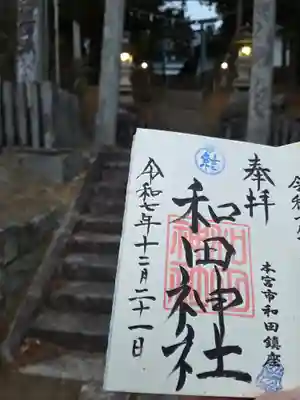 奉拝
本宮市和田鎮座
和田神社
結
令和七年十二月二十一日